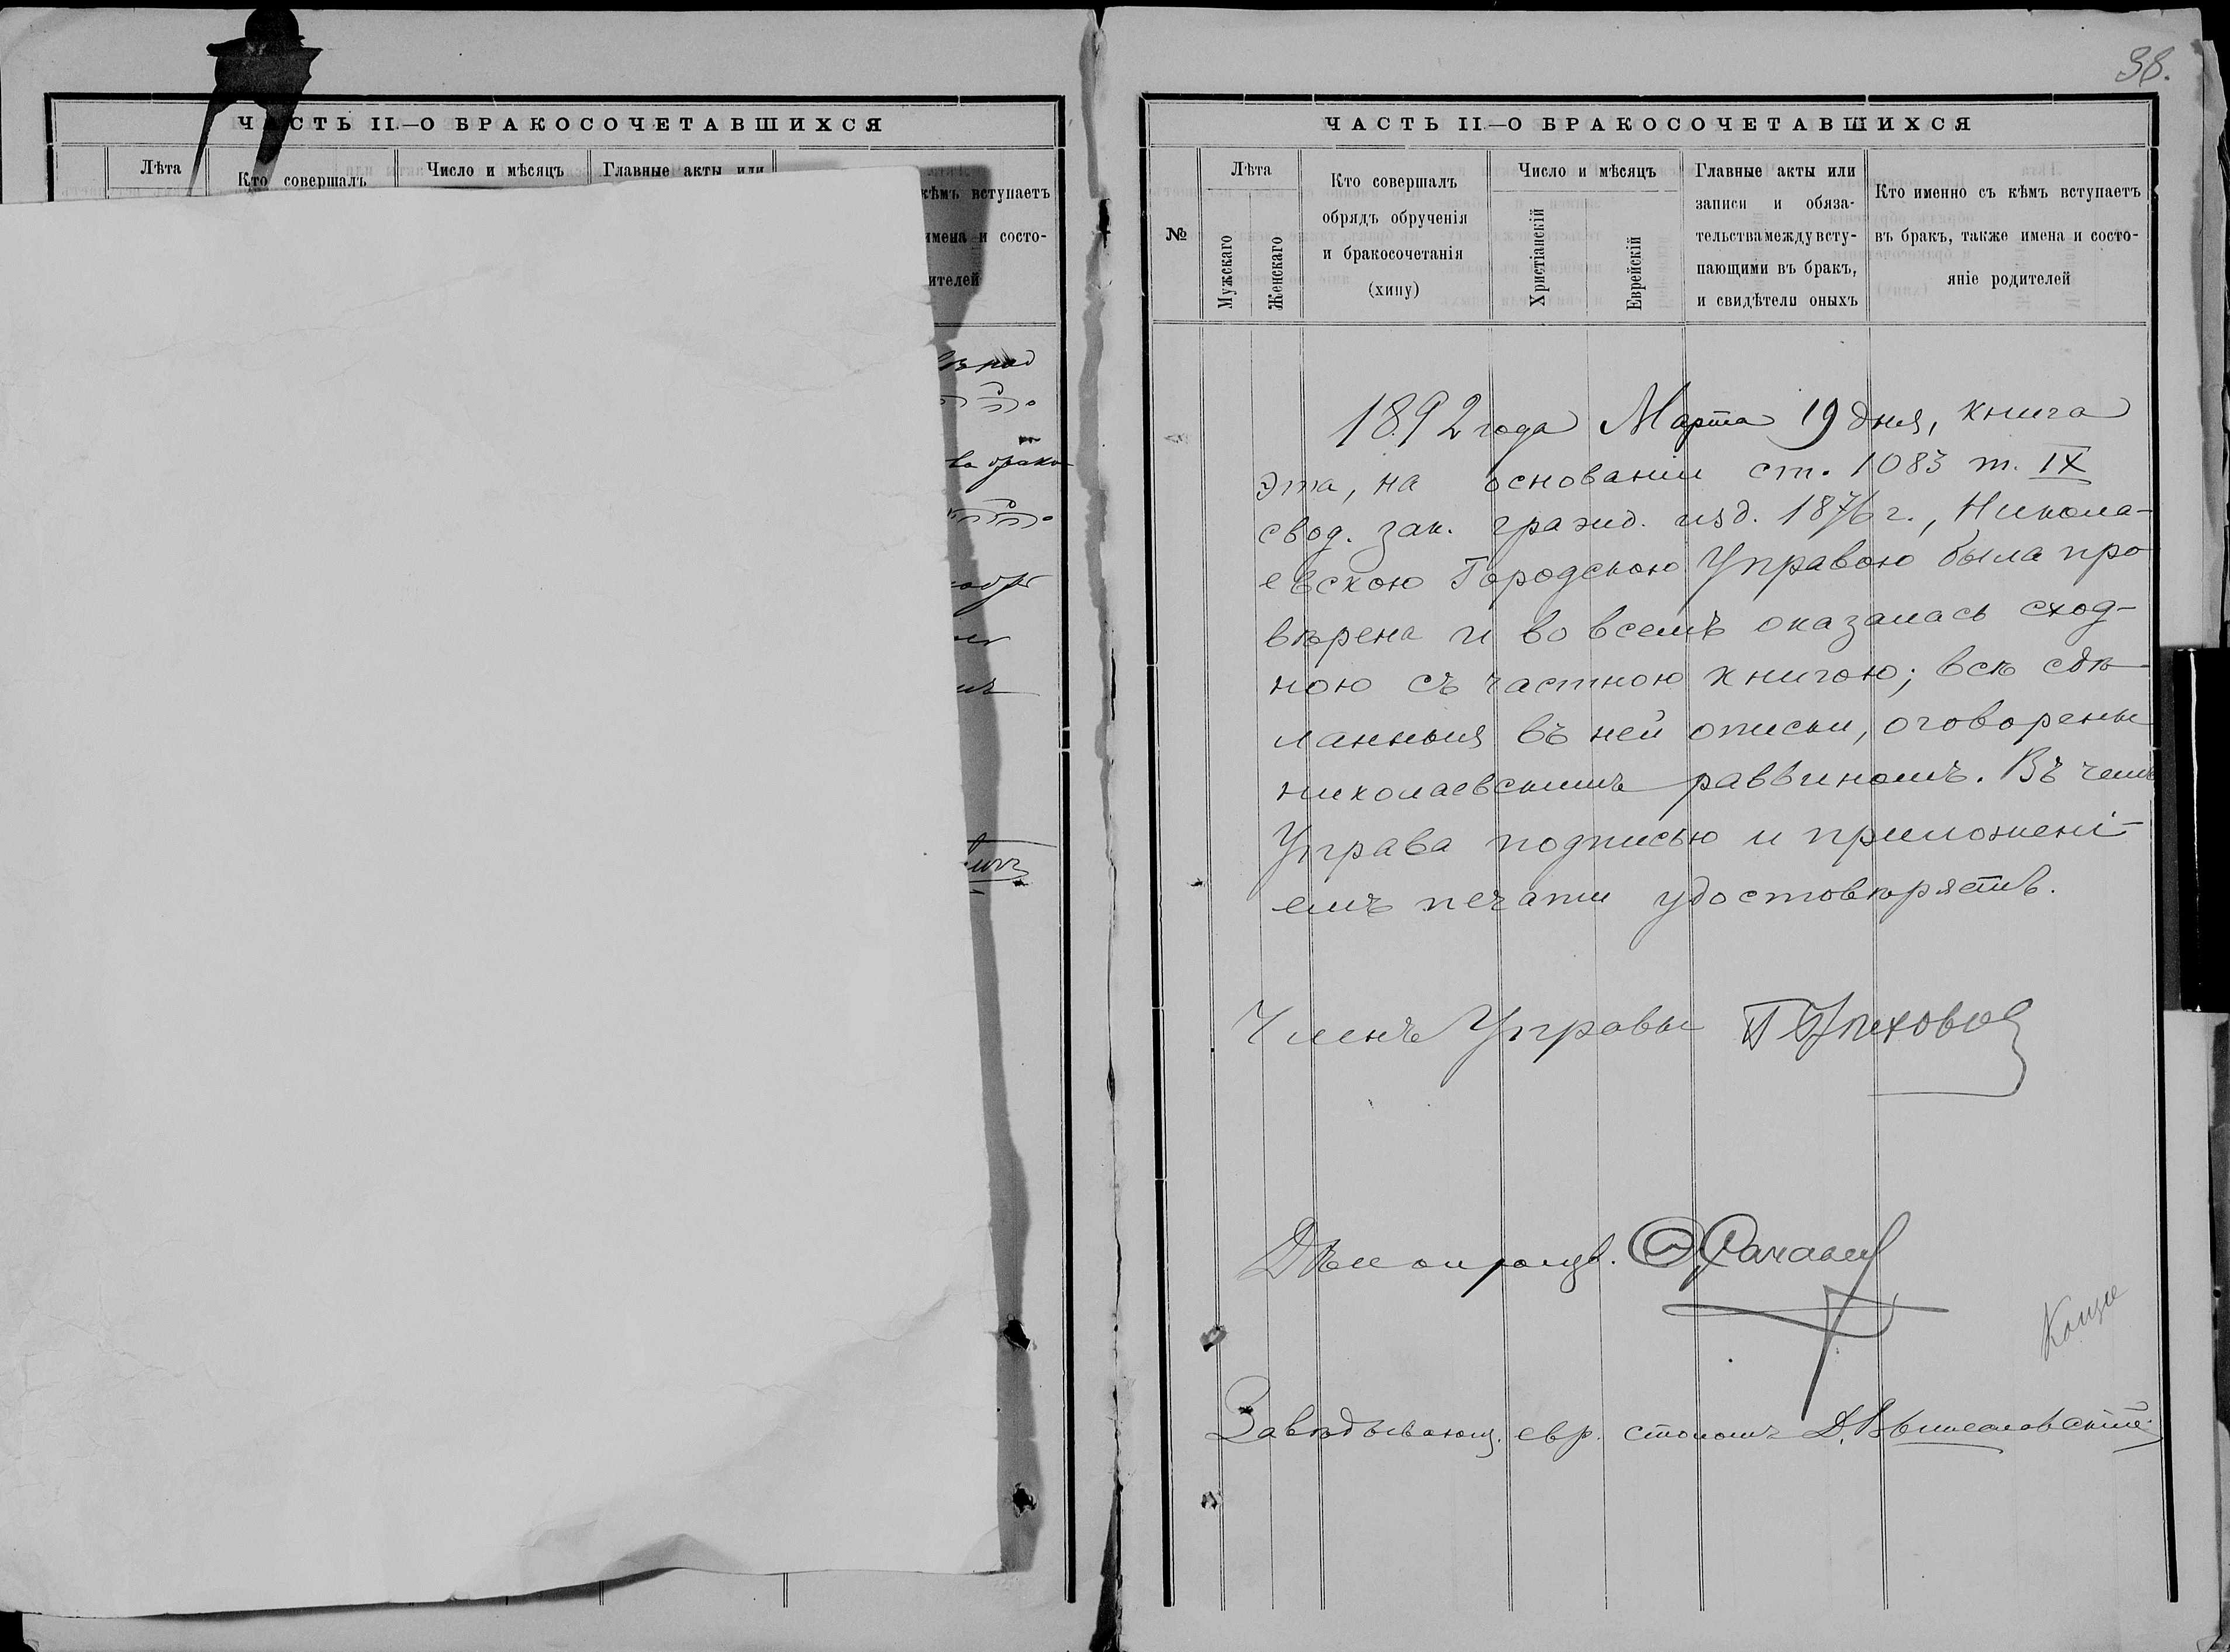 ЧАСТЬ II.—О БРАКОСОЧЕТАВШИХСЯ
Лѣта
Кто совершалъ
Число и мѣсяцъ
Главные акты или
кѣмъ вступаетъ
имена и состо-
ителей
38.
ЧАСТЬ II.—О БРАКОСОЧЕТАВШИХСЯ
№
Лѣта
Мужскаго
Женскаго
Кто совершалъ
обрядъ обрученія
и бракосочетанія
(хупу)
Число и мѣсяцъ
Христіанскій
Еврейскій
Главные акты или
записи и обяза-
тельства между всту-
пающими въ бракъ,
и свидѣтели оныхъ
Кто именно съ кѣмъ вступаетъ
въ бракъ, также имена и состо-
яніе родителей
1892 года Марта 19 дня, книга
эта, на основаніи ст. 1083 т. IX
свод. зак. гражд. изд. 1876 г., Никола-
евскою Городскою Управою была про
вѣрена и во всемъ оказалась сход-
ною съ частною книгою; всѣ сдѣ-
ланныя въ ней описки, оговорены
николаевскимъ раввиномъ. Въ чемъ
Управа подписью и приложені-
емъ печати удостовѣряетъ.
Членъ Управы
Дѣлопроизв.
Завѣдывающ. евр. столомъ Д.